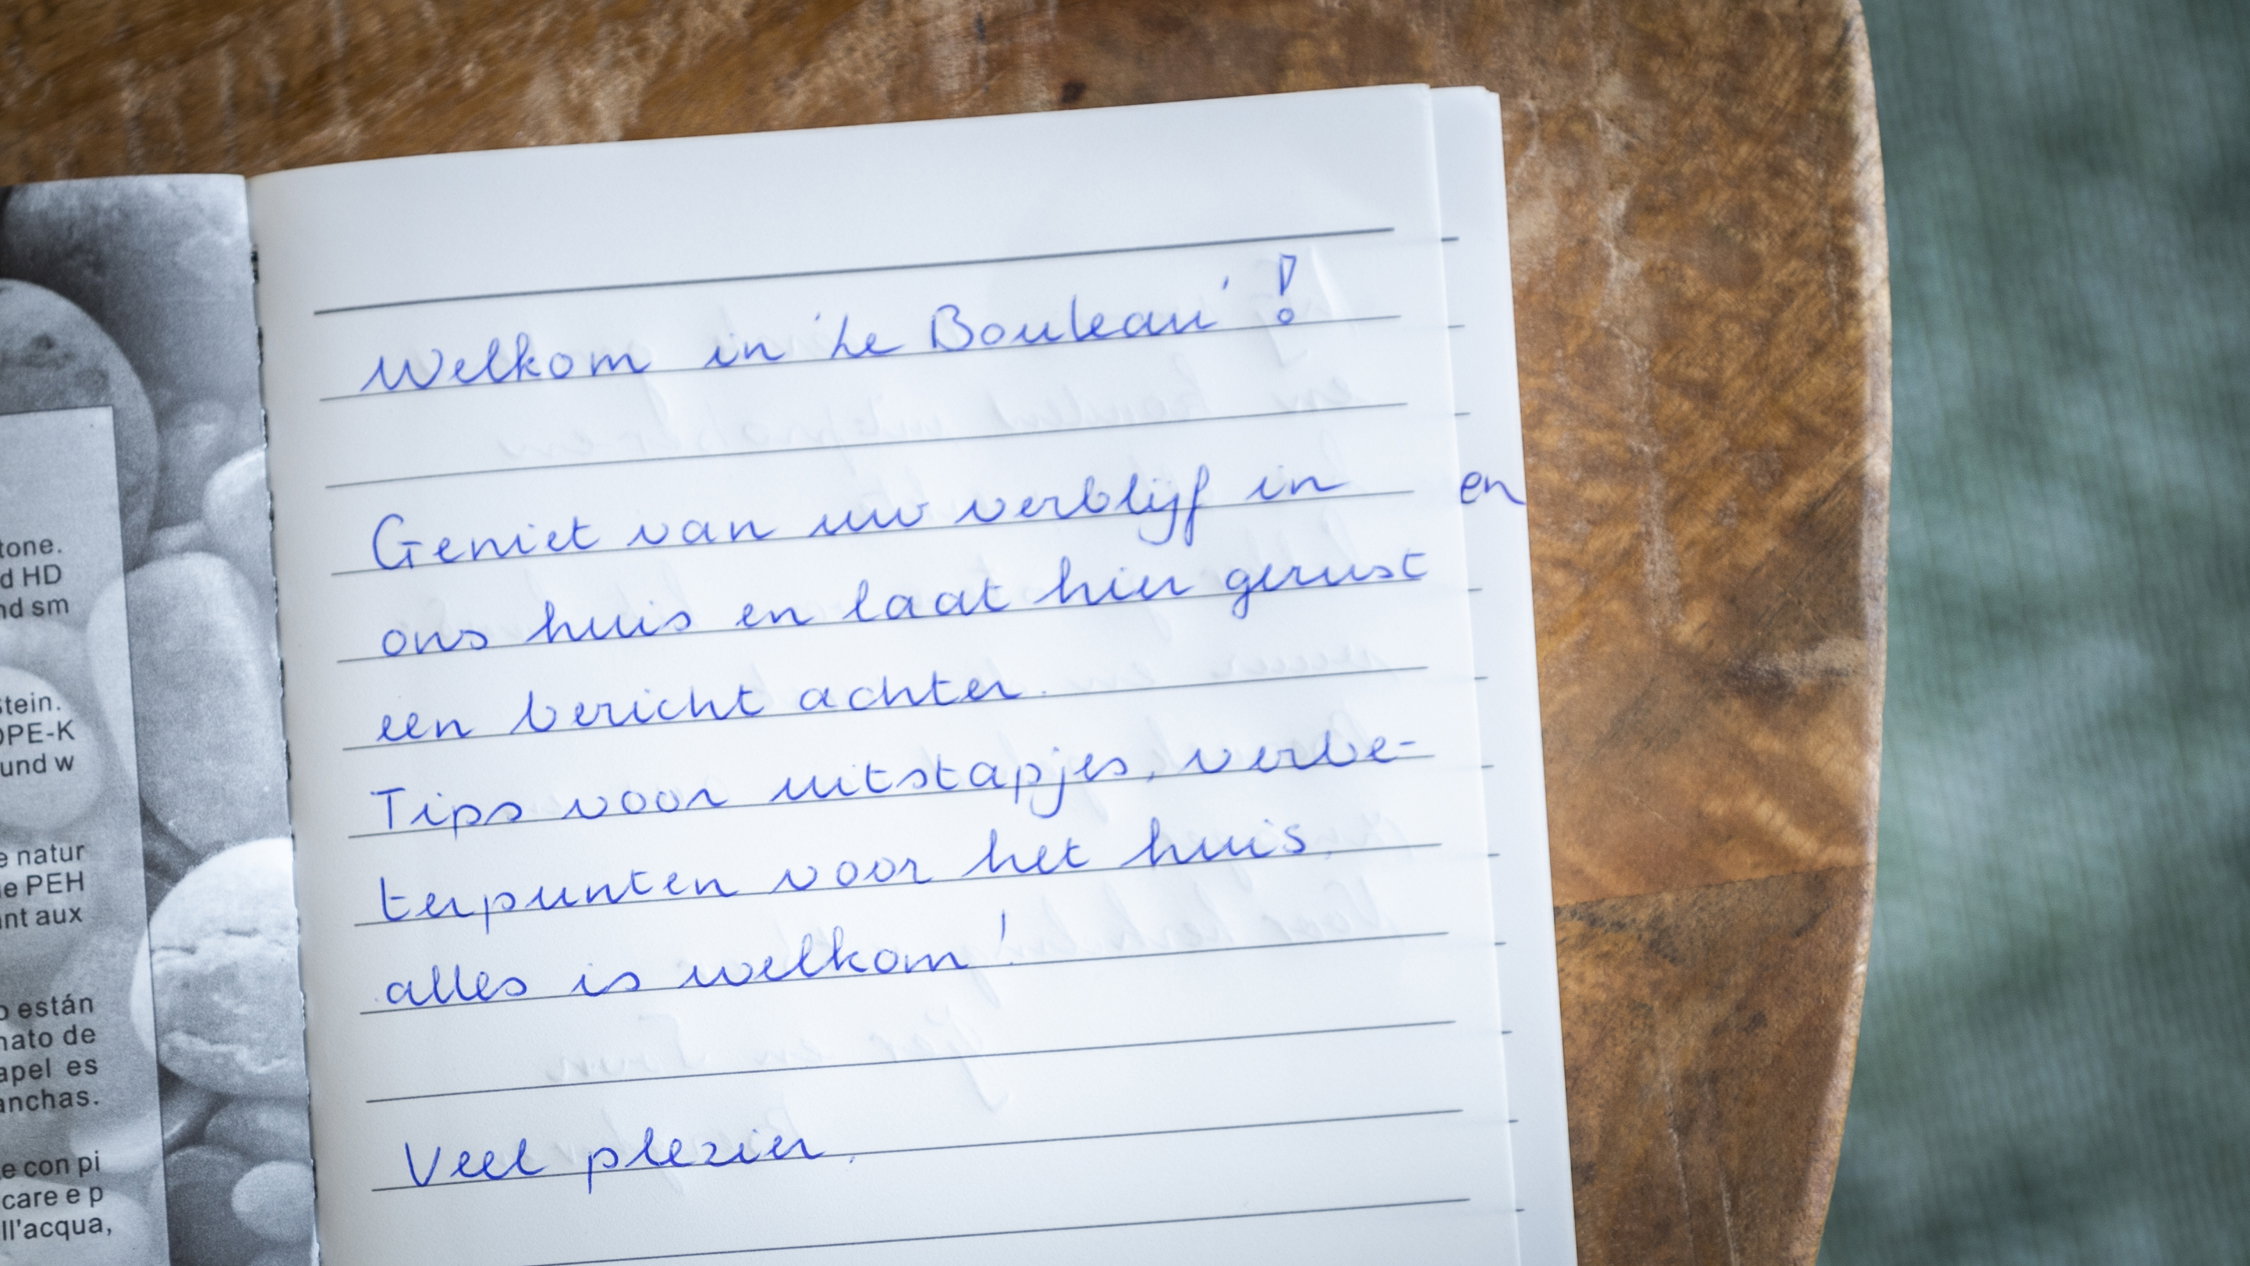 tone.
d HD
nd sm
Stein.
OPE-K
und w
e natur
PEH
nt aux
están
mato de
apel es
anchas.
e con pi
care e p
ll'acqua,
Welkom in 'Le Bouleau'!
Geniet van uw verblijf in
ons huis en laat hier gerust
een bericht achter.
Tips voor uitstapjes, verbe-
terpunten voor het huis,
alles is welkom!
Veel plezier.
en